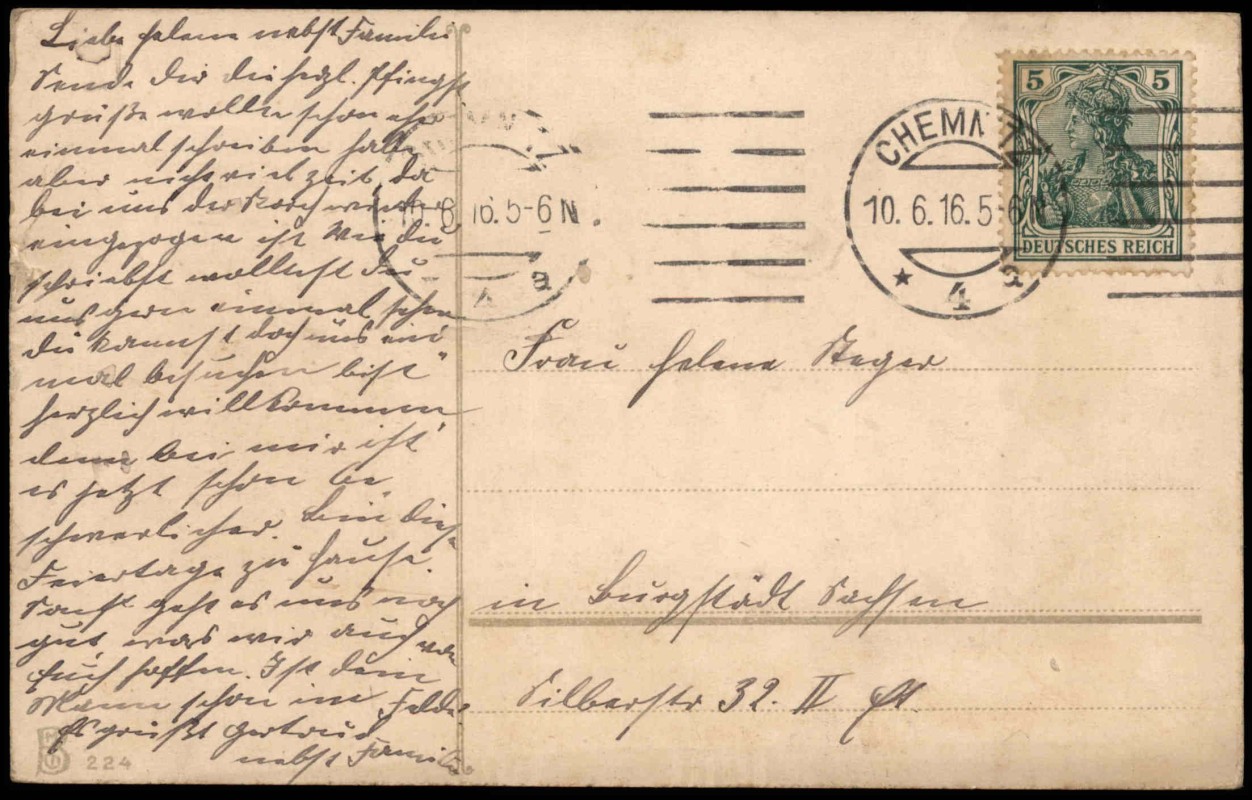 Liebe Helene nebst Familie
Sende Dir die herzl. Pfingst
grüße wollte schon eher
einmal schreiben hatte
aber nicht viel Zeit da
bei uns der Storch wieder
eingezogen ist Wie du
schriebst wolltest du
uns gern einmal sehen
du kannst doch uns ein
mal besuchen bist
herzlich willkommen
denn bei mir ist
es jetzt schon be
schwerlicher. Bin diese
Feiertage zu Hause.
Sonst geht es uns noch
gut, was wir auch von
Euch hoffen. Ist dein
Mann schon im Felde
Es grüßt Gertrud
nebst Familie
224
10.6.16.5-6N.
4 a
CHEMN
10.6.16.5-6N
4 a
5 5
DEUTSCHES REICH
Frau Helene Steger
in Burgstädt Sachsen
Silberstr 32. II Et.